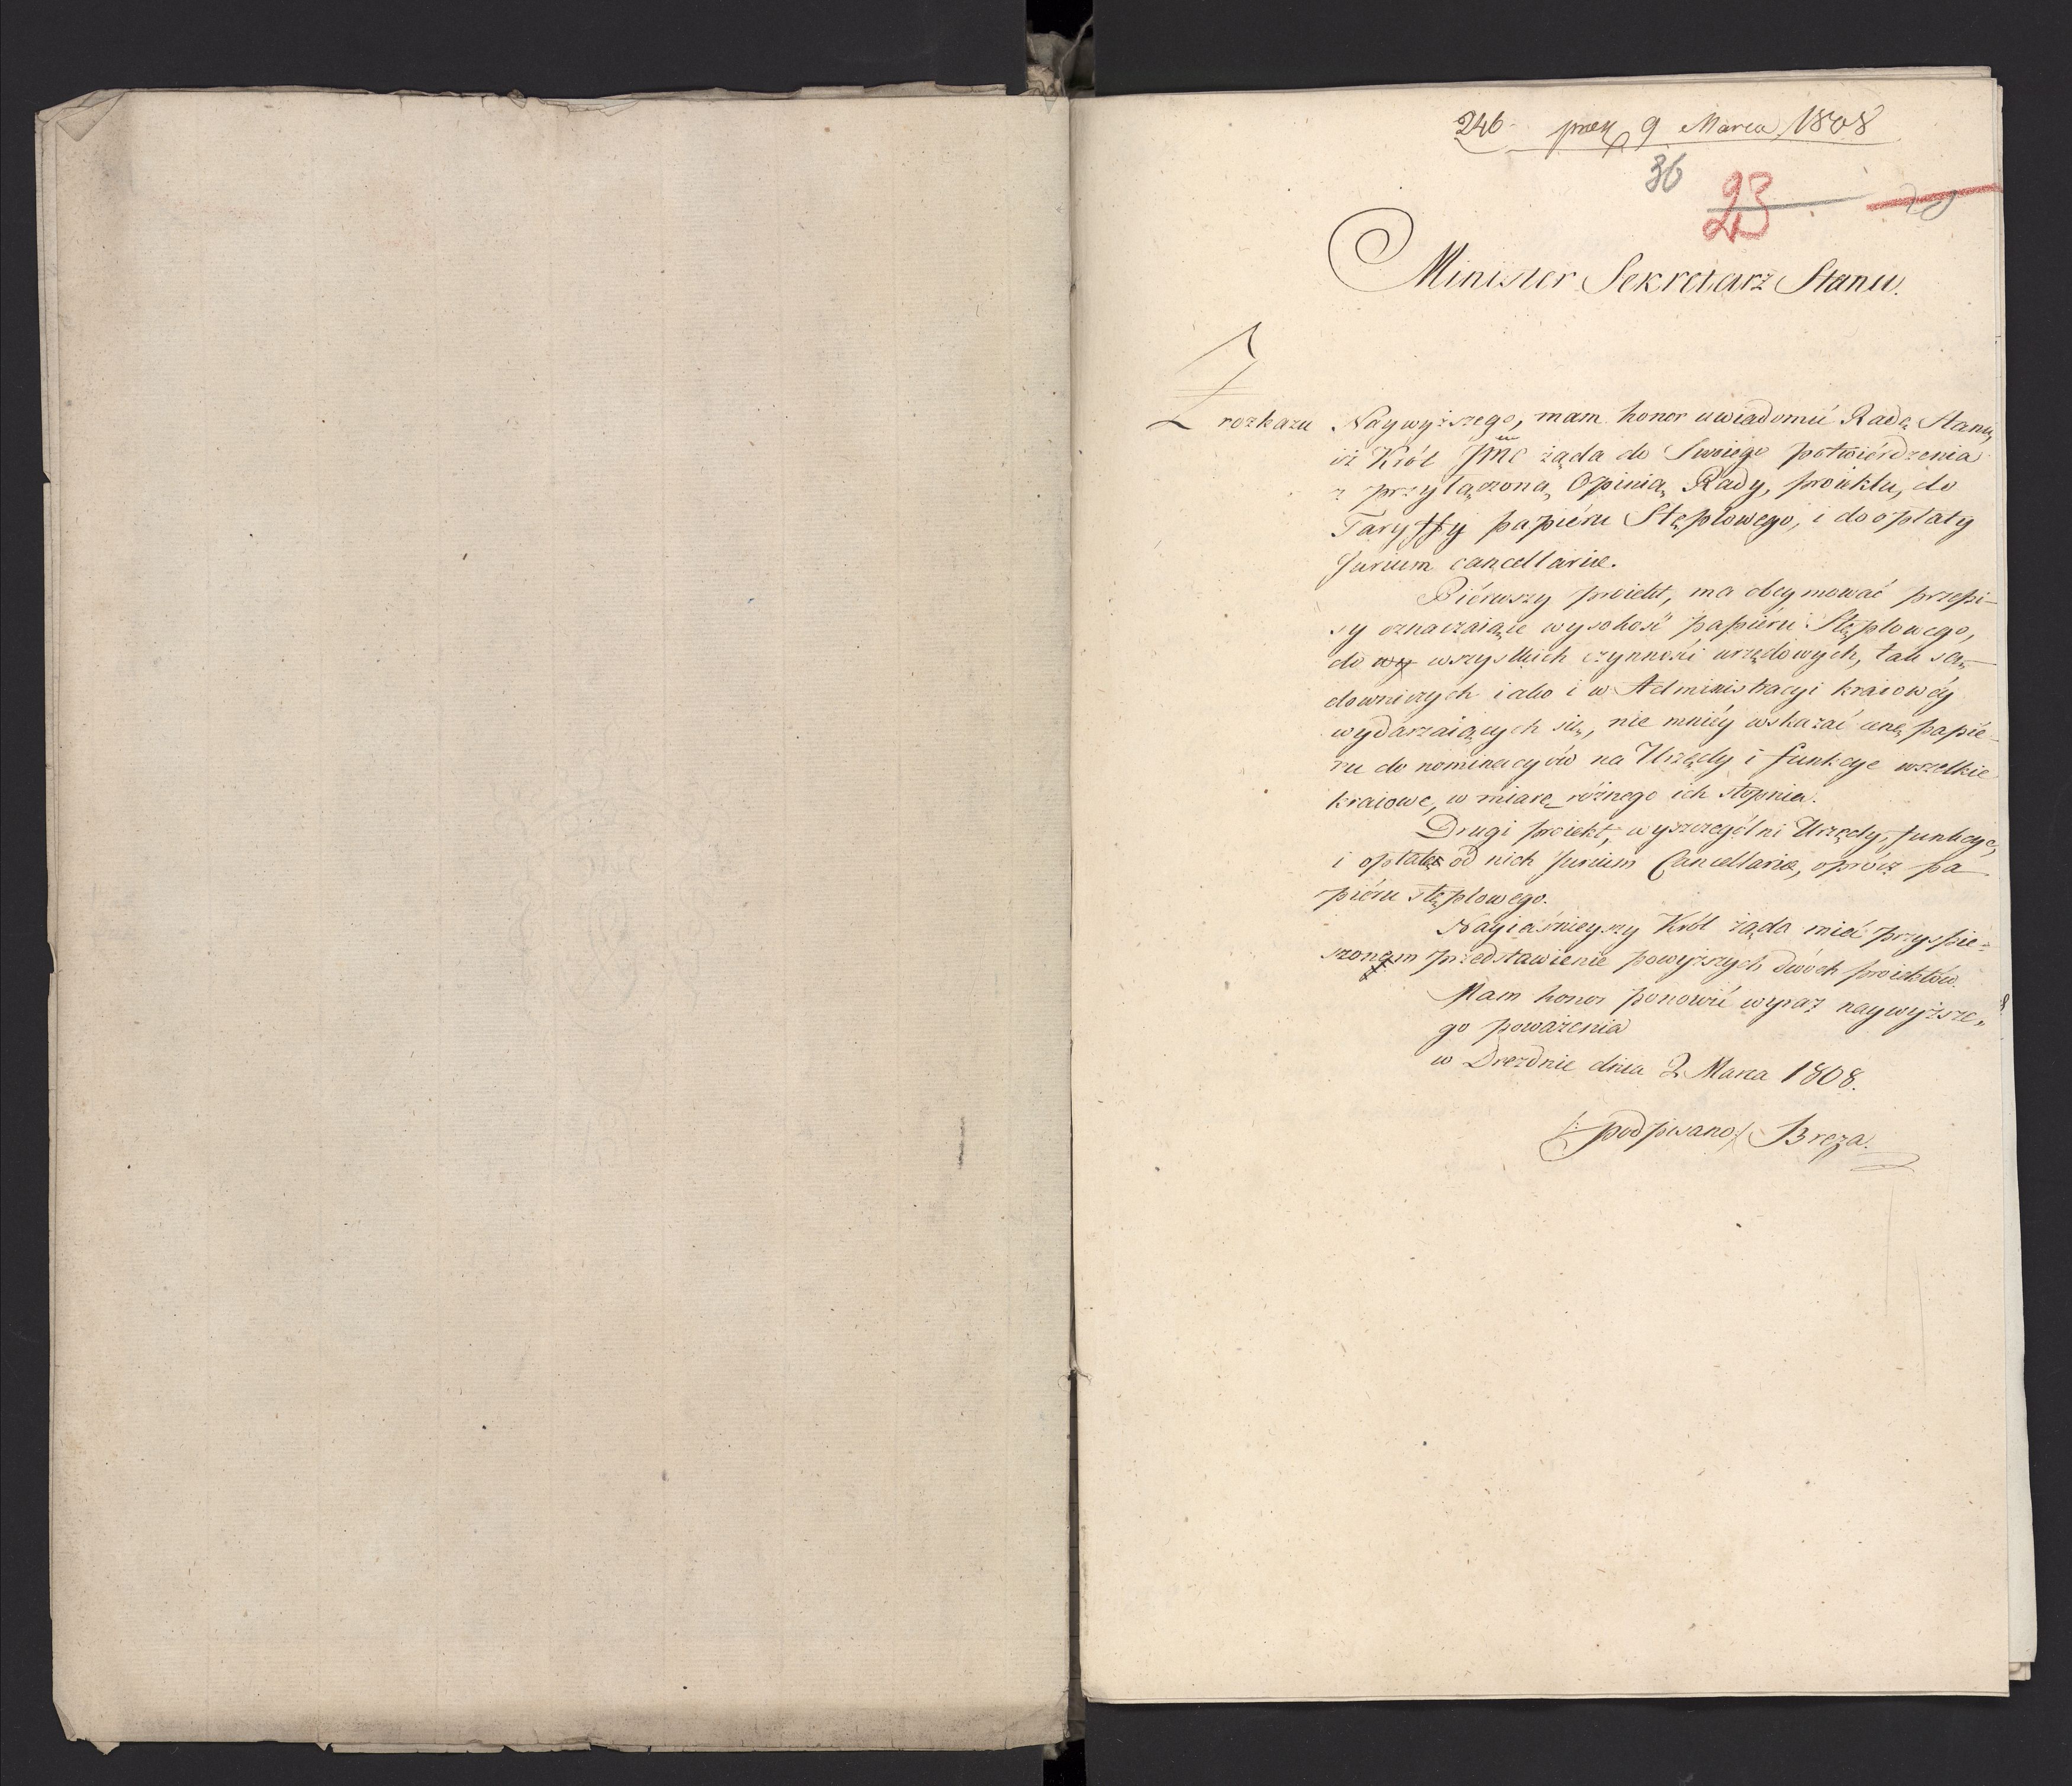 246 prez 9 Marca 1808
36
23
Minister Sekretarz Stanu.
Z rozkazu Naywyższego, mam honor uwiadomić Radę Stanu,
iż Król JMć żąda do Swoiego potwiérdzenia
z przyłączoną Opinią Rady, proiektu, do
Taryffy papiéru Stęplowego, i do opłaty
Jurium cancellariæ.
Piérwszy proiekt, ma obeymować przepi-
sy oznaczaiące wysokość papiéru Stęplowego,
do wy wszystkich czynności urzędowych, tak są-
downiczych iako i w Administracyi kraiowéy
wydarzaiących się, nie mniéy wskazać cenę papié-
ru do nominacyów na Urzędy i funkcye wszelkie
kraiowe, w miarę różnego ich stopnia.
Drugi proiekt, wyszczególni Urzędy, funkcye,
i opłatę od nich Jurium Cancellariæ, oprócz pa
piéru stęplowego.
Nayiaśnieyszy Król żąda mieć przyspie-
szonem przedstawienie powyższych dwóch proiektów.
Mam honor ponowić wyraz naywyższe-
go poważenia
w Dreźnie dnia 2 Marca 1808.
/: podpisano :/ Breza.